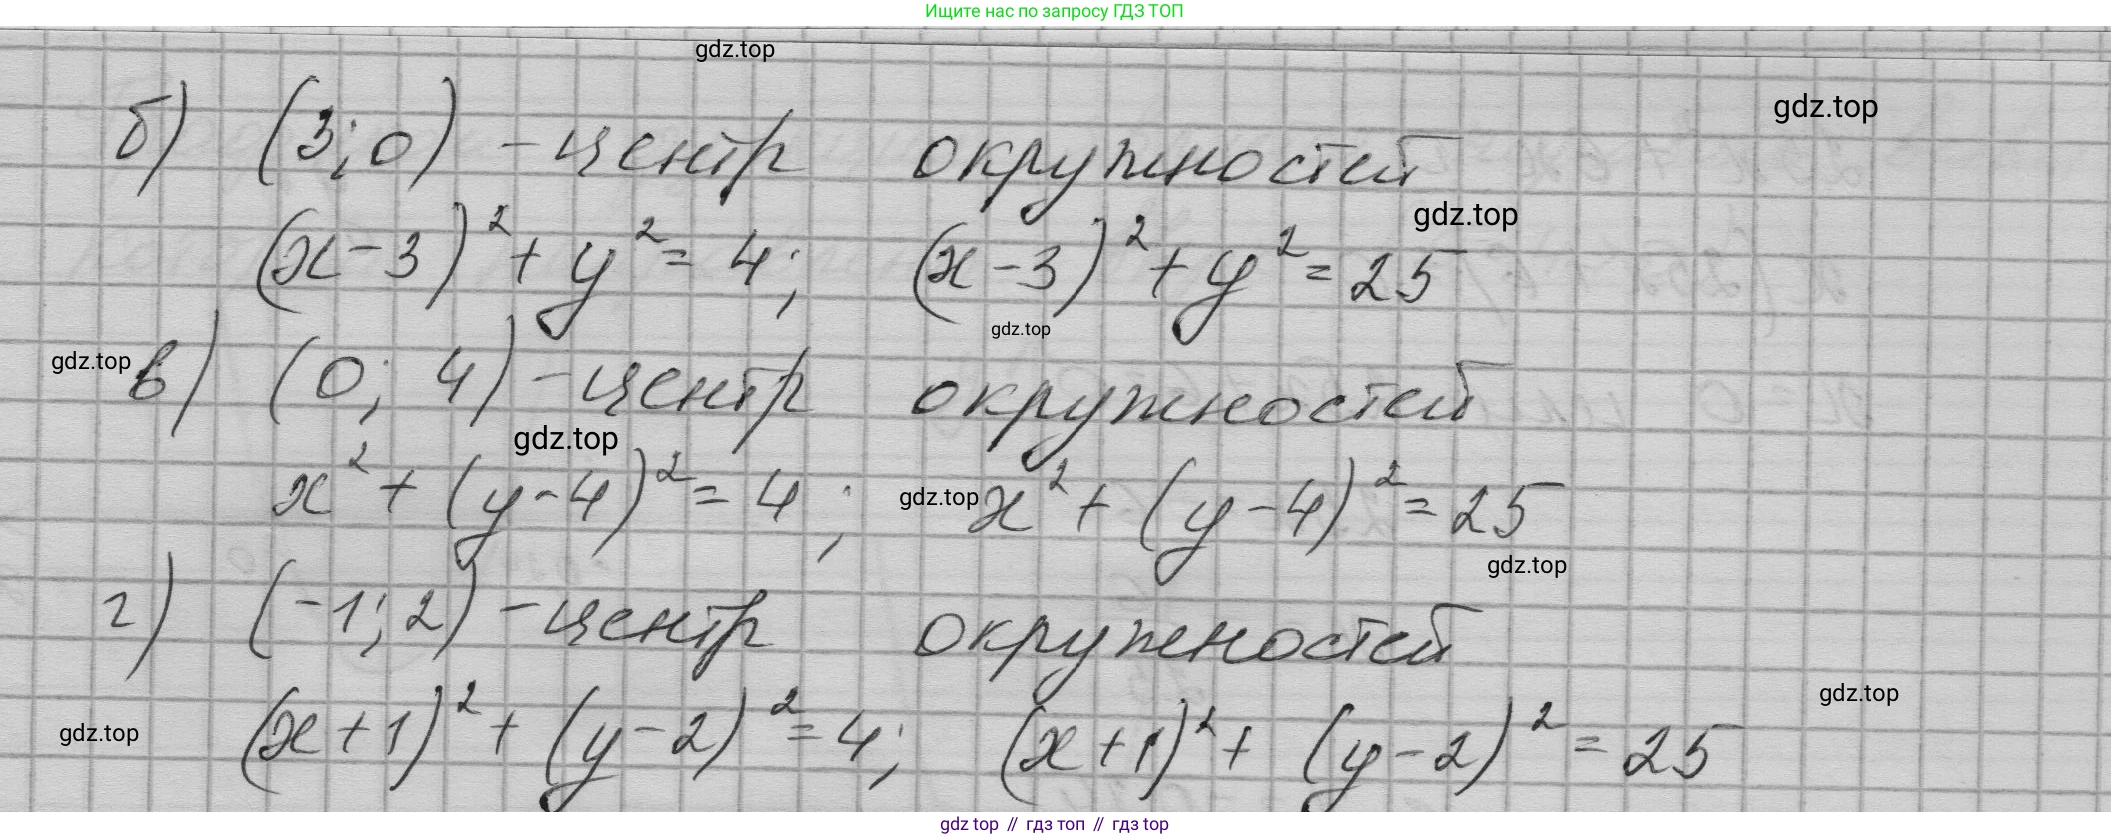 Ищите нас по запросу ГДЗ ТОП
gdz.top
gdz.top
б) (3; 0) – центр окружностей
gdz.top
(x – 3)² + y² = 4; (x – 3)² + y² = 25
gdz.top
gdz.top
в) (0; 4) – центр окружностей
gdz.top
x² + (y – 4)² = 4; x² + (y – 4)² = 25
gdz.top
gdz.top
г) (–1; 2) – центр окружностей
gdz.top
(x + 1)² + (y – 2)² = 4; (x + 1)² + (y – 2)² = 25
gdz.top
gdz top // гдз топ // гдз top